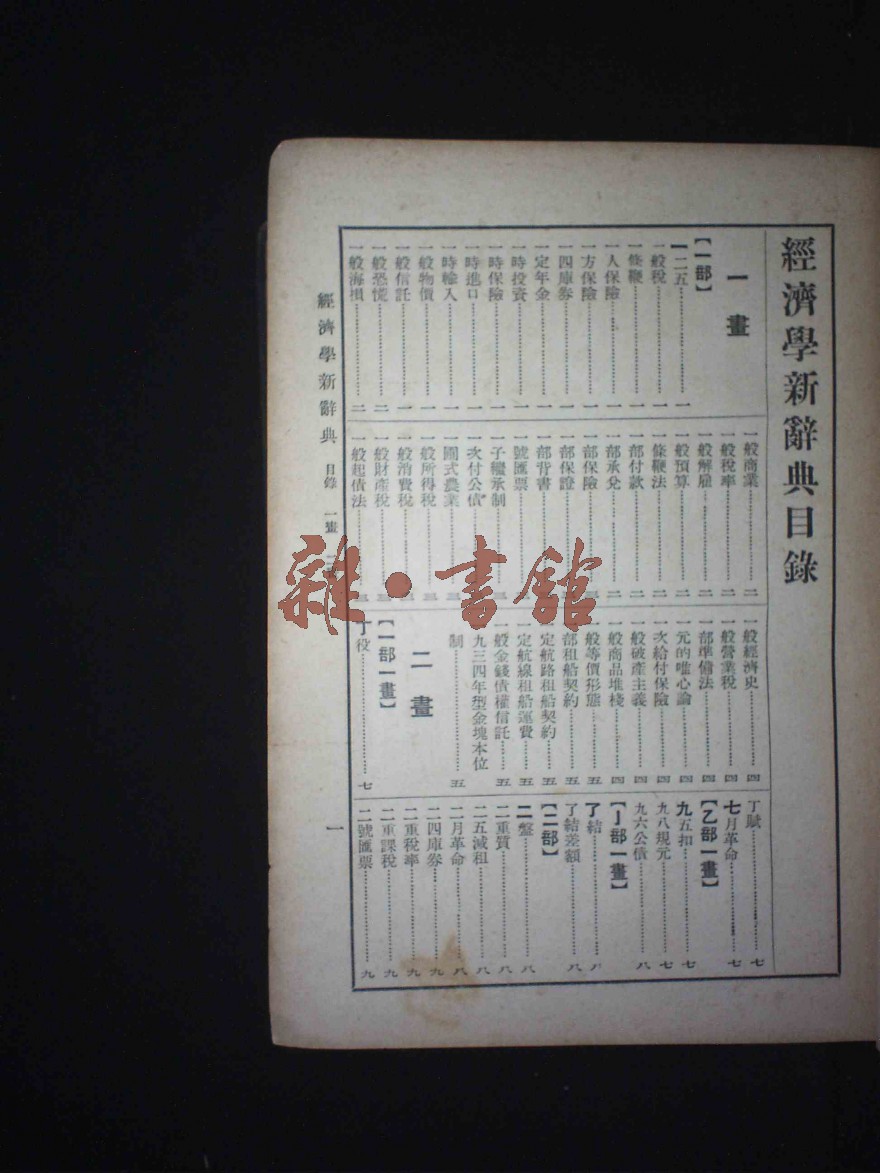 經濟學新辭典目錄
一畫
【一部】
一二五……一
一般稅……一
一條鞭……一
一人保險……一
一方保險……一
一四庫券……一
一定年金……一
一時投資……一
一時保險……一
一時進口……一
一時輸入……一
一般物價……一
一般信託……一
一般恐慌……二
一般海損……二
一般商業……二
一般稅率……二
一般解雇……二
一般預算……二
一條鞭法……二
一部付款……二
一部承兌……二
一部保險
一部保證
一部背書
一號匯票
一子繼承制
一次付公債
一圃式農業
一般所得稅
一般消費稅
一般財產稅
一般起債法
一般經濟史……四
一般營業稅……四
一部準備法……四
一元的唯心論……四
一次給付保險……四
一般破產主義……四
一般商品堆棧……四
一般等價形態……五
一部租船契約……五
一定航路租船契約……五
一定航線租船運費……五
一般金錢債權信託……五
一九三四年型金塊本位
制……五
二畫
【一部一畫】
丁役……七
丁賦……七
七月革命……七
【乙部一畫】
九五扣……七
九八規元……七
九六公債……八
【亅部一畫】
了結……八
了結差額……八
【二部】
二盤……八
二重質……八
二五減租……八
二月革命……八
二四庫券……九
二重稅率……九
二重課稅……九
二號匯票……九
經濟學新辭典 目錄 一畫
一
雜·書館